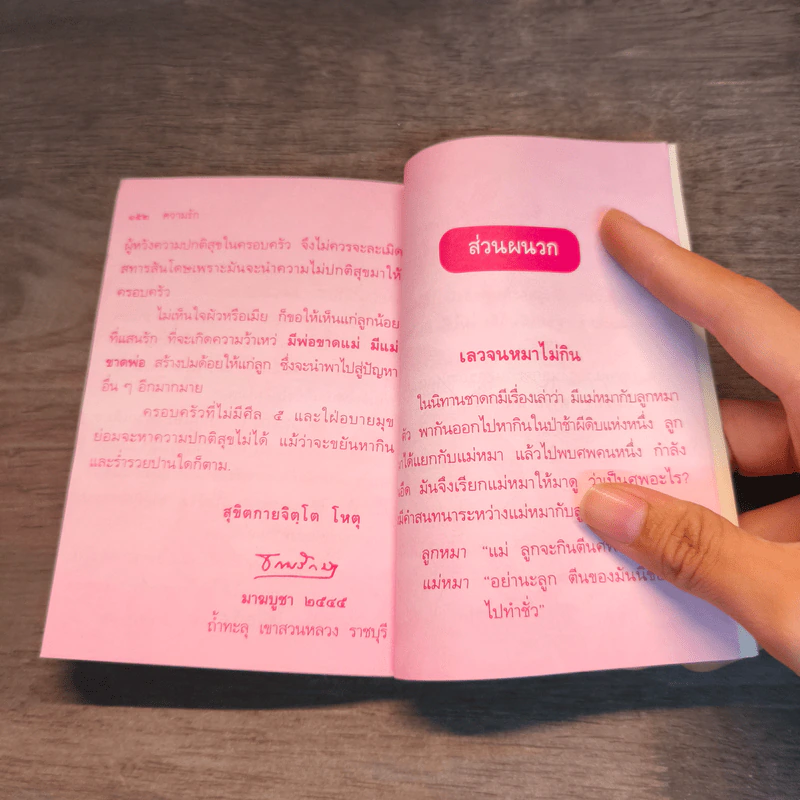 ๑๕๒ ความรัก
ผู้หวังความปกติสุขในครอบครัว จึงไม่ควรจะละเมิด
สทารสันโดษเพราะมันจะนำความไม่ปกติสุขมาให้
ครอบครัว
ไม่เห็นใจผัวหรือเมีย ก็ขอให้เห็นแก่ลูกน้อย
ที่แสนรัก ที่จะเกิดความว้าเหว่ มีพ่อขาดแม่ มีแม่
ขาดพ่อ สร้างปมด้อยให้แก่ลูก ซึ่งจะนำพาไปสู่ปัญหา
อื่น ๆ อีกมากมาย
ครอบครัวที่ไม่มีศีล ๕ และใฝ่อบายมุข
ย่อมจะหาความปกติสุขไม่ได้ แม้ว่าจะขยันหากิน
และร่ำรวยปานใดก็ตาม.
สุขิตกายจิตฺโต โหตุ
มาฆบูชา ๒๕๔๕
ถ้ำทะลุ เขาสวนหลวง ราชบุรี
ส่วนผนวก
เลวจนหมาไม่กิน
ในนิทานชาดกมีเรื่องเล่าว่า มีแม่หมากับลูกหมา
ตัว พากันออกไปหากินในป่าช้าผีดิบแห่งหนึ่ง ลูก
ได้แยกกับแม่หมา แล้วไปพบศพคนหนึ่ง กำลัง
อืด มันจึงเรียกแม่หมาให้มาดู ว่าเป็นศพอะไร?
มีคำสนทนาระหว่างแม่หมากับ
ลูกหมา “แม่ ลูกจะกินตีน
แม่หมา “อย่านะลูก ตีนของมัน
ไปทำชั่ว”